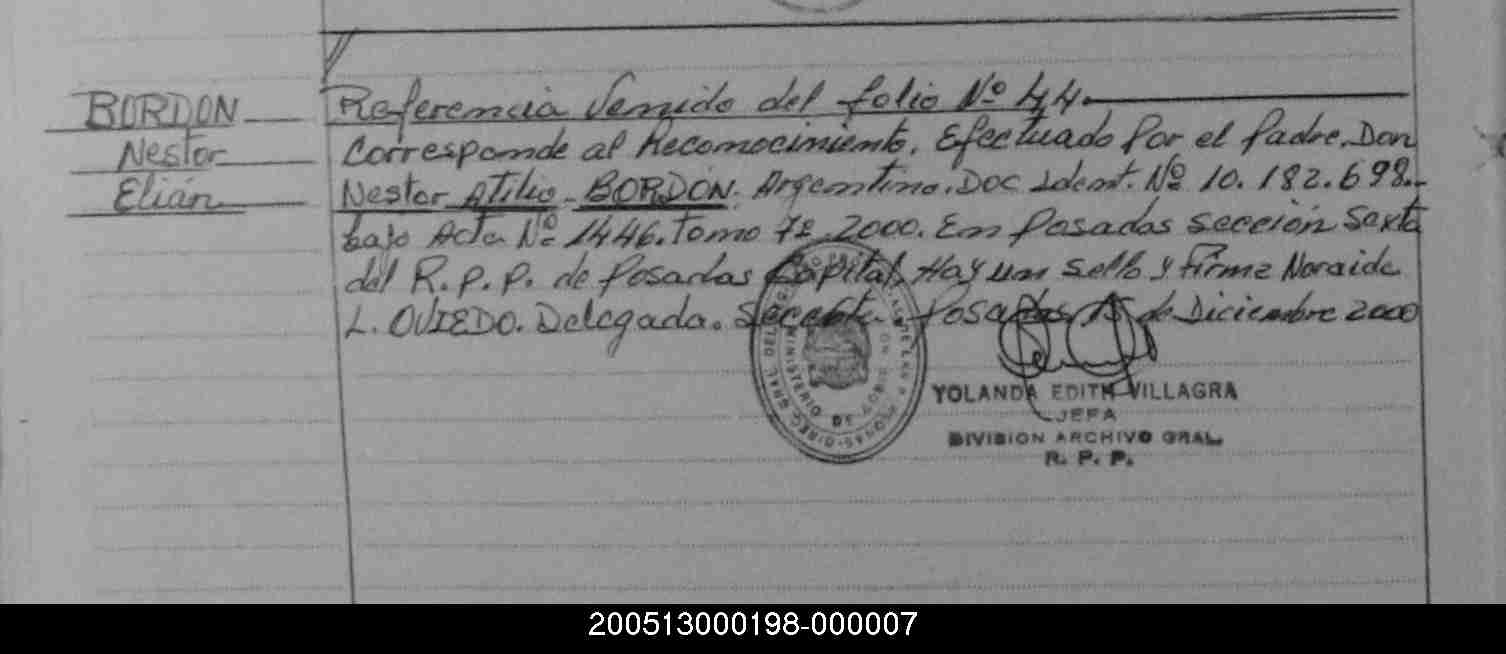 BORDON
Nestor
Elián
Referencia Venido del folio Nº 44.
Corresponde al Reconocimiento, Efectuado por el padre, Don
Nestor Atilio BORDON. Argentino. Doc Ident. Nº 10.182.698.-
bajo Acta Nº 1446. Tomo 7º 2000. En Posadas Sección Sexta
del R.P.P. de Posadas Capital, Hay un Sello y firma Noraida
L. OVIEDO. Delegada. Posadas, 15 de Diciembre 2000
YOLANDA EDITH VILLAGRA
JEFA
DIVISION ARCHIVO GRAL.
R. P. P.
MINISTERIO DE GOBIERNO
200513000198-000007